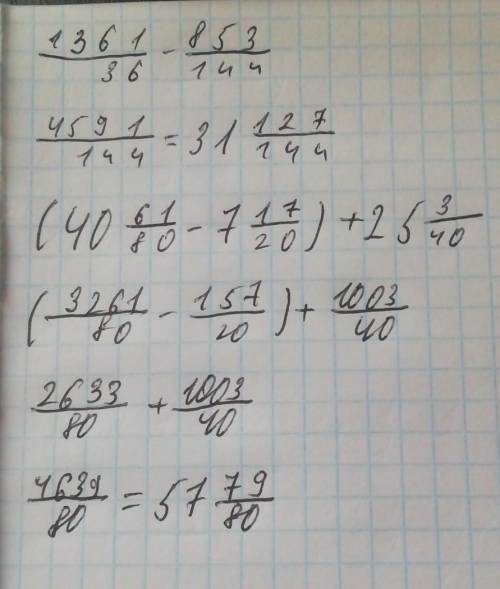 1361/36 - 853/144
4591/144 = 31 127/144
(40 61/80 - 7 17/20) + 25 3/40
(3261/80 - 157/20) + 1003/40
2633/80 + 1003/40
4639/80 = 57 79/80